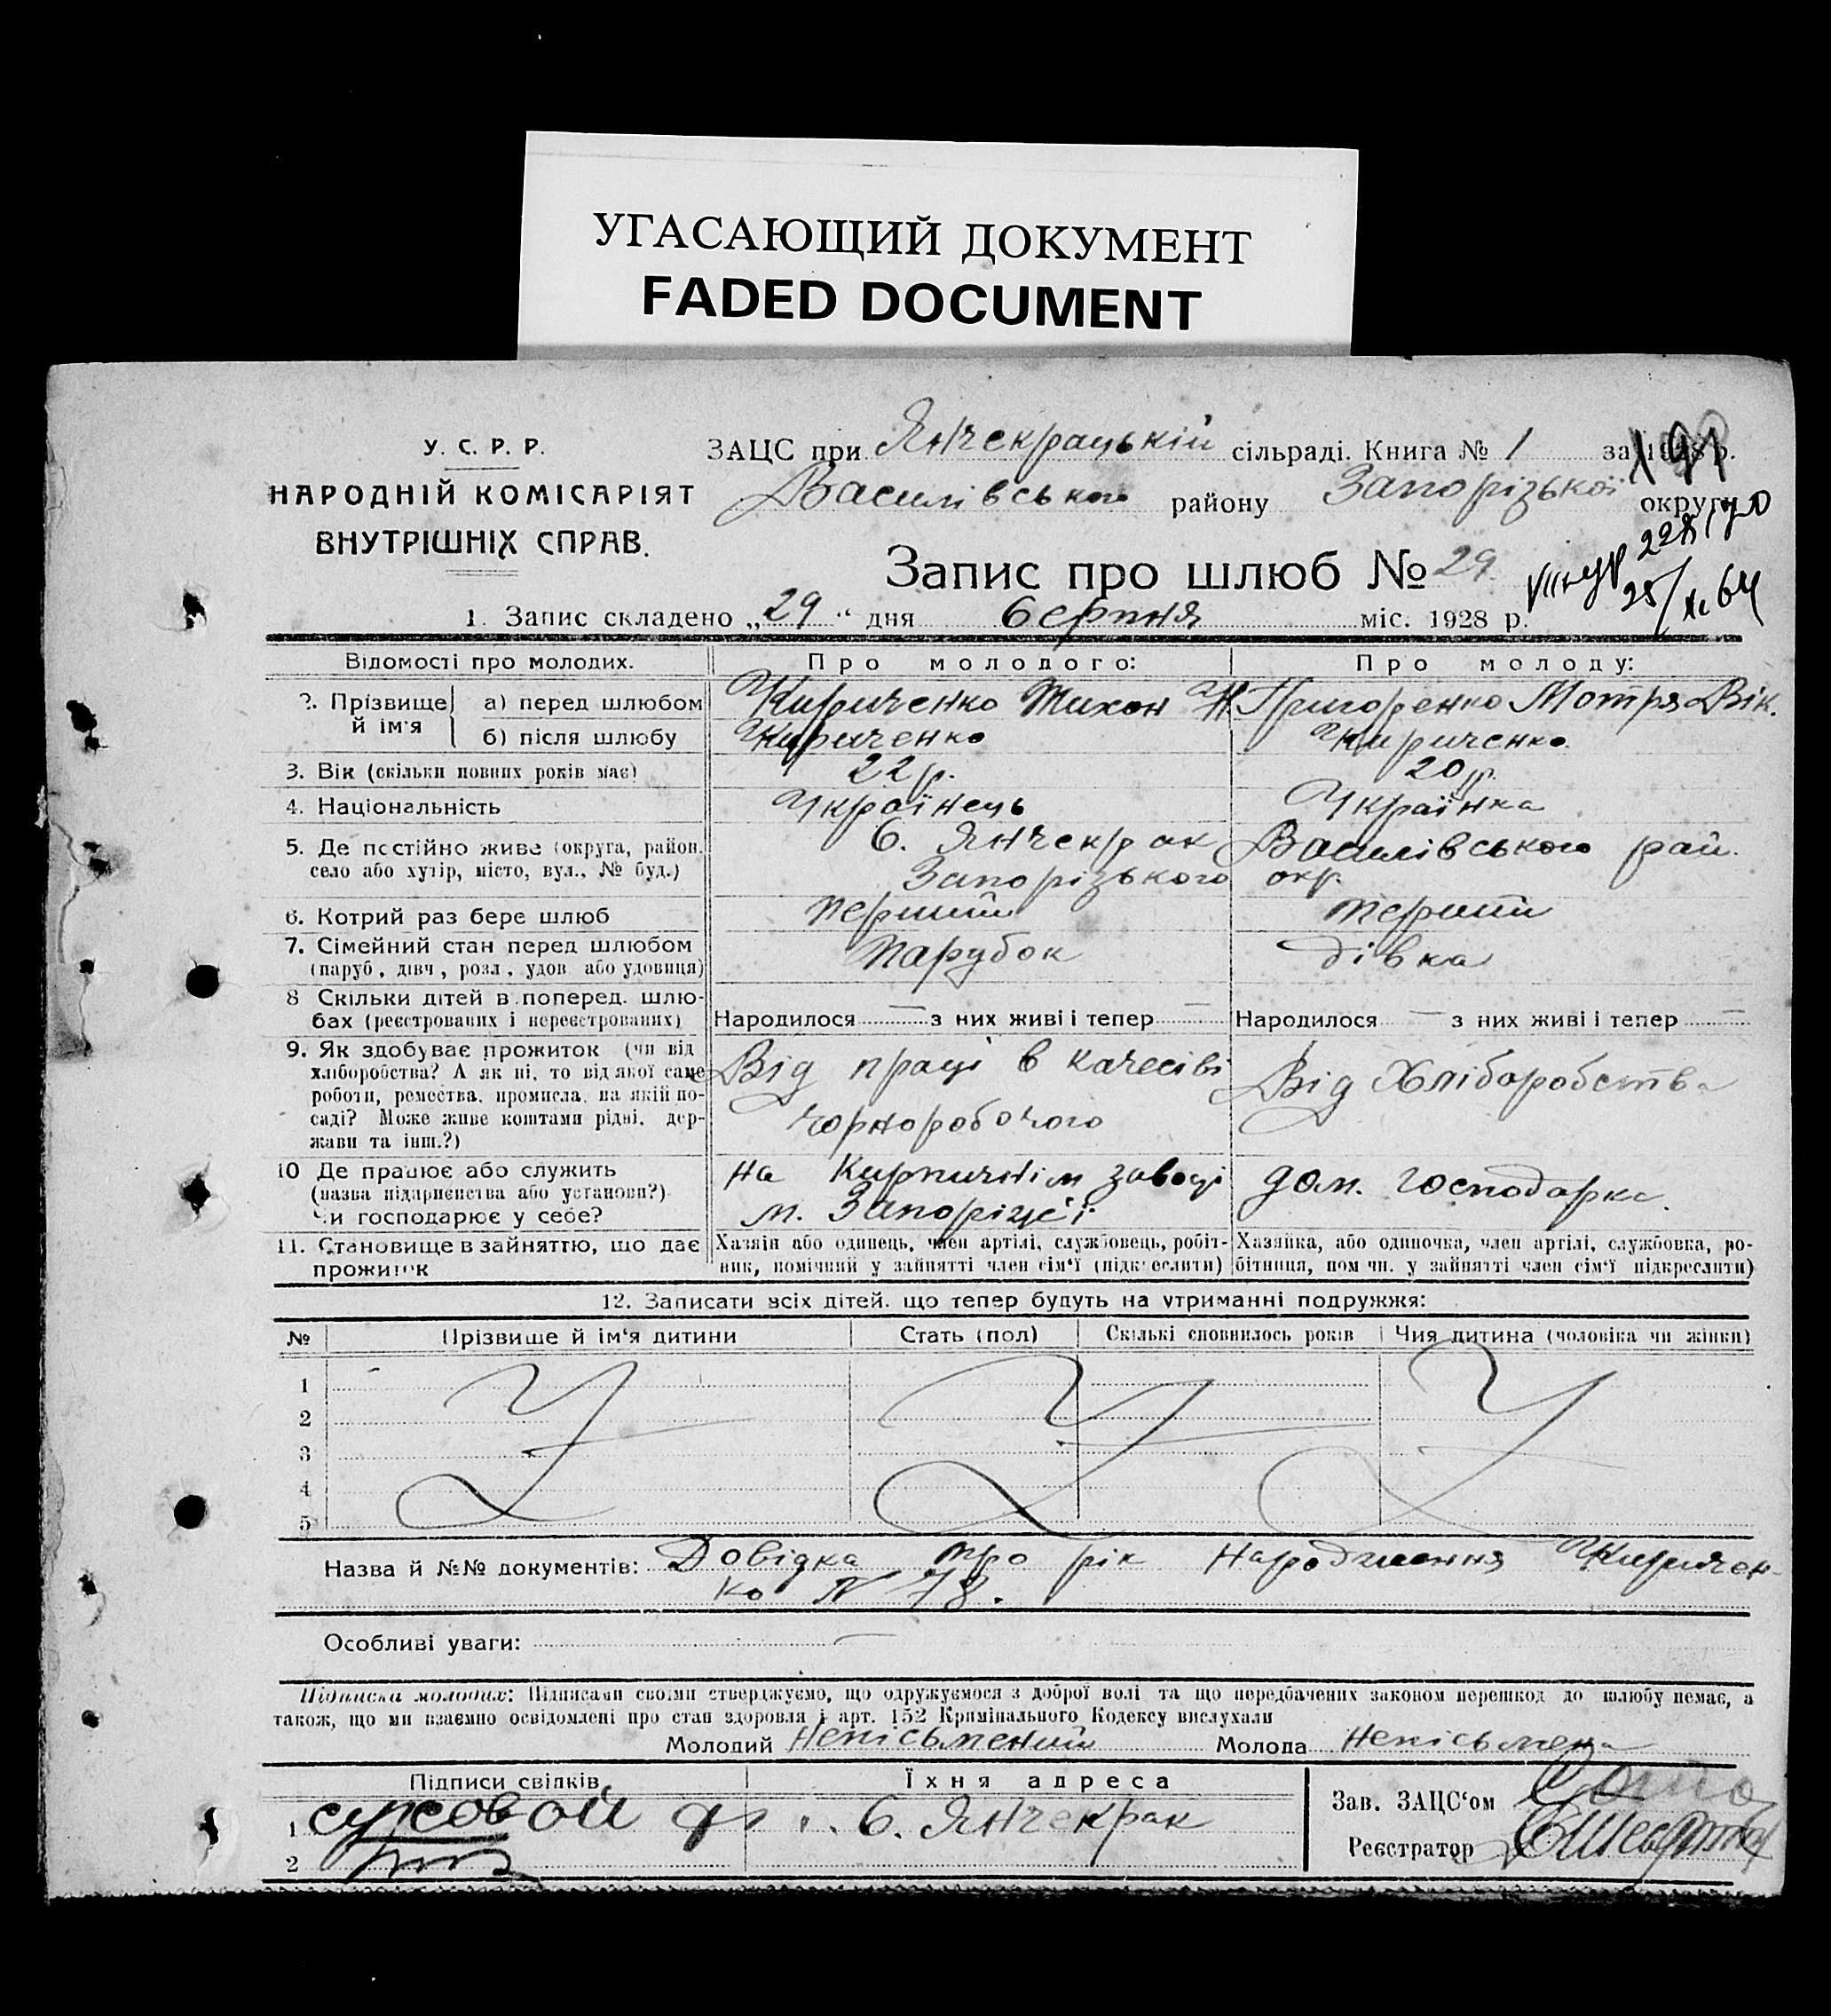 УГАСАЮЩИЙ ДОКУМЕНТ
FADED DOCUMENT
У. С. Р. Р.
НАРОДНІЙ КОМІСАРІЯТ
ВНУТРІШНІХ СПРАВ.
ЗАЦС при Янчекрацькій сільраді. Книга № 1 за 1928 р.
Василівського району Запорізької округи
Запис про шлюб № 29
1. Запис складено „29“ дня Серпня міс. 1928 р.
Відомості про молодих. Про молодого: Про молоду:
2. Прізвище й ім'я а) перед шлюбом Кириченко Тихон Григоренко Мотря Вік.
б) після шлюбу Кириченко Кириченко
3. Вік (скільки повних років має) 22 р. 20 р.
4. Національність Українець Українка
5. Де постійно живе (округа, район, С. Янчекрак Василівського рай.
село або хутір, місто, вул., № буд.) Запорізького окр.
6. Котрий раз бере шлюб перший перший
7. Сімейний стан перед шлюбом парубок дівка
(паруб., дівч., розл., удов. або удовиця)
8 Скільки дітей в поперед. шлю-
бах (реєстрованих і нереєстрованих) Народилося — з них живі і тепер — Народилося — з них живі і тепер —
9. Як здобуває прожиток (чи від Від праці в качесіві Від Хліборобства
хліборобства? А як ні, то від якої саме
роботи, ремества, промисла, на якій по- чорноробочого
саді? Може живе коштами рідні, дер-
жави та інш.?)
10 Де працює або служить на Кирпичнім заводі дом. господарка.
(назва підприємства або установи?) м. Запоріжжі
Чи господарює у себе?
11. Становище в зайняттю, що дає Хазяїн або одинець, член артілі, службовець, робіт- Хазяйка, або одиночка, член артілі, службовка, ро-
прожиток ник, помічний у зайнятті член сім'ї (підкреслити) бітниця, пом чн. у зайнятті член сім'ї підкреслити)
12. Записати всіх дітей, що тепер будуть на утриманні подружжя:
№ Прізвище й ім'я дитини Стать (пол) Скількі сповнилось років Чия дитина (чоловіка чи жінки)
1
2
3
4
5
Назва й №№ документів: Довідка про рік Народження Киричен-
ко N 78.
Особливі уваги: —
Підписка молодих: Підписами своїми стверджуємо, що одружуємося з доброї волі та що передбачених законом перешкод до шлюбу немає, а
також, що ми взаємно освідомлені про стан здоровля і арт. 152 Кримінального Кодексу вислухали
Молодий Неписьмений Молода Неписьмена
Підписи свідків Їхня адреса
1 Сусовой С. Янчекрак
2
Зав. ЗАЦС'ом
Реєстратор